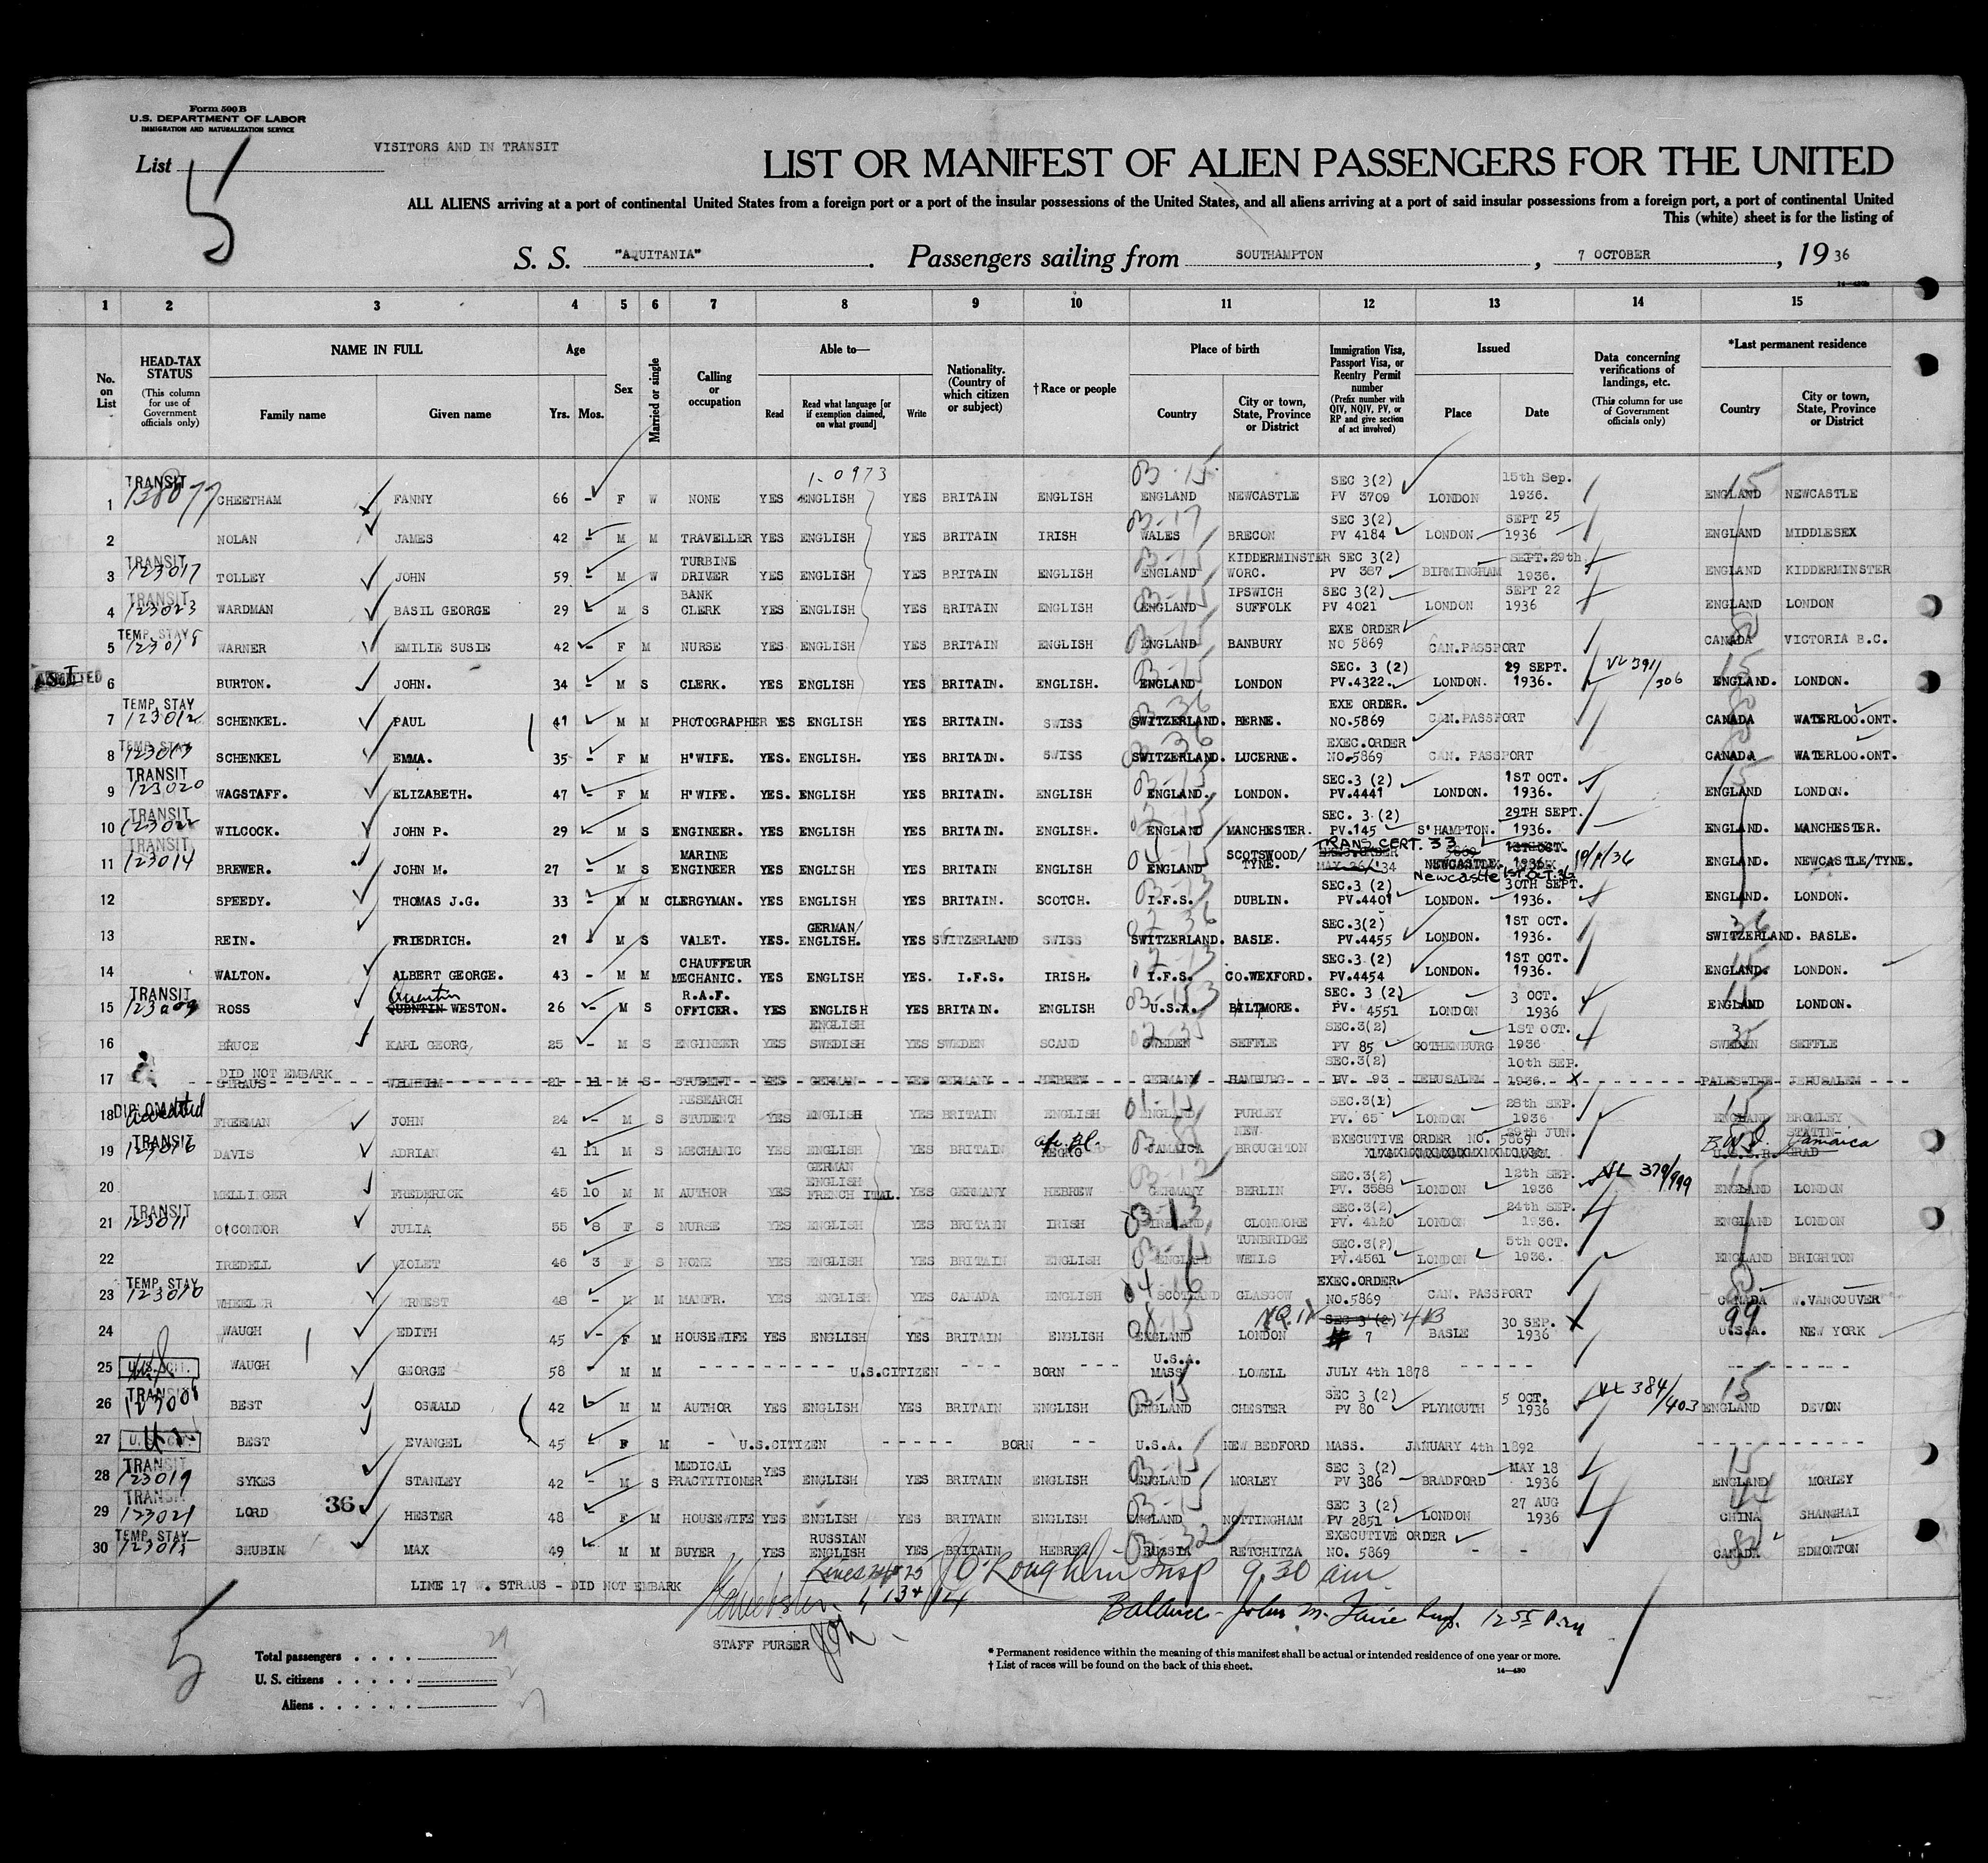 Form 500 B
U.S. DEPARTMENT OF LABOR
IMMIGRATION AND NATURALIZATION SERVICE
List 5
VISITORS AND IN TRANSIT
LIST OR MANIFEST OF ALIEN PASSENGERS FOR THE UNITED
ALL ALIENS arriving at a port of continental United States from a foreign port or a port of the insular possessions of the United States, and all aliens arriving at a port of said insular possessions from a foreign port, a port of continental United
This (white) sheet is for the listing of
S. S. "AQUITANIA". Passengers sailing from SOUTHAMPTON, 7 OCTOBER, 1936
1 2 3 4 5 6 7 8 9 10 11 12 13 14 15
No. on List
HEAD-TAX STATUS (This column for use of Government officials only)
NAME IN FULL Family name Given name
Age Yrs. Mos.
Sex
Married or single
Calling or occupation
Able to— Read Read what language [or if exemption claimed, on what ground] Write
Nationality. (Country of which citizen or subject)
†Race or people
Place of birth Country City or town, State, Province or District
Immigration Visa, Passport Visa, or Reentry Permit number (Prefix number with QIV, NQIV, PV, or RP and give section of act involved)
Issued Place Date
Data concerning verifications of landings, etc. (This column for use of Government officials only)
*Last permanent residence Country City or town, State, Province or District
1 TRANSIT CHEETHAM FANNY 66 - F W NONE YES ENGLISH YES BRITAIN ENGLISH ENGLAND NEWCASTLE SEC 3(2) PV 3709 LONDON 15th Sep. 1936. ENGLAND NEWCASTLE
2 NOLAN JAMES 42 - M M TRAVELLER YES ENGLISH YES BRITAIN IRISH WALES BRECON SEC 3(2) PV 4184 LONDON SEPT 25 1936 ENGLAND MIDDLESEX
3 TRANSIT 123017 TOLLEY JOHN 59 - M W TURBINE DRIVER YES ENGLISH YES BRITAIN ENGLISH ENGLAND KIDDERMINSTER WORC. SEC 3(2) PV 387 BIRMINGHAM SEPT.29th 1936. ENGLAND KIDDERMINSTER
4 TRANSIT 123023 WARDMAN BASIL GEORGE 29 M S BANK CLERK YES ENGLISH YES BRITAIN ENGLISH ENGLAND IPSWICH SUFFOLK SEC 3(2) PV 4021 LONDON SEPT 22 1936 ENGLAND LONDON
5 TEMP. STAY 123018 WARNER EMILIE SUSIE 42 - F M NURSE YES ENGLISH YES BRITAIN ENGLISH ENGLAND BANBURY EXE ORDER NO 5869 CAN.PASSPORT CANADA VICTORIA B.C.
6 BURTON. JOHN. 34 - M S CLERK. YES ENGLISH YES BRITAIN. ENGLISH. ENGLAND LONDON SEC. 3 (2) PV.4322. LONDON. 29 SEPT. 1936. VL 391/306 ENGLAND. LONDON.
7 TEMP. STAY 123012 SCHENKEL. PAUL 41 - M M PHOTOGRAPHER YES ENGLISH YES BRITAIN. SWISS SWITZERLAND. BERNE. EXE ORDER. NO.5869 CAN.PASSPORT CANADA WATERLOO.ONT.
8 TEMP. STAY 123013 SCHENKEL EMMA. 35 - F M H'WIFE. YES. ENGLISH. YES BRITAIN. SWISS SWITZERLAND. LUCERNE. EXEC.ORDER NO.5869 CAN. PASSPORT CANADA WATERLOO.ONT.
9 TRANSIT 123020 WAGSTAFF. ELIZABETH. 47 - F M H'WIFE. YES. ENGLISH YES BRITAIN. ENGLISH ENGLAND. LONDON. SEC.3 (2) PV.4441 LONDON. 1ST OCT. 1936. ENGLAND LONDON.
10 TRANSIT 123022 WILCOCK. JOHN P. 29 - M S ENGINEER. YES ENGLISH YES BRITAIN. ENGLISH. ENGLAND MANCHESTER. SEC. 3 (2) PV.145 S'HAMPTON. 29TH SEPT. 1936. ENGLAND. MANCHESTER.
11 TRANSIT 123014 BREWER. JOHN M. 27 - M S MARINE ENGINEER YES ENGLISH YES BRITAIN ENGLISH ENGLAND SCOTSWOOD/TYNE. TRANS. CERT. 33 MAY 26/'34 NEWCASTLE. 1936. Newcastle 1st Oct. 36 10/1/36 ENGLAND. NEWCASTLE/TYNE.
12 SPEEDY. THOMAS J.G. 33 - M M CLERGYMAN. YES ENGLISH YES BRITAIN. SCOTCH. I.F.S. DUBLIN. SEC.3 (2) PV.4401 LONDON. 30TH SEPT. 1936. ENGLAND. LONDON.
13 REIN. FRIEDRICH. 21 - M S VALET. YES. GERMAN/ENGLISH. YES SWITZERLAND SWISS SWITZERLAND. BASLE. SEC.3(2) PV.4455 LONDON. 1ST OCT. 1936. SWITZERLAND. BASLE.
14 WALTON. ALBERT GEORGE. 43 - M M CHAUFFEUR MECHANIC. YES ENGLISH YES. I.F.S. IRISH. I.F.S. CO.WEXFORD. SEC.3(2) PV.4454 LONDON. 1ST OCT. 1936. ENGLAND. LONDON.
15 TRANSIT ROSS Quentin QUENTIN WESTON. 26 - M S R.A.F. OFFICER. YES ENGLISH YES BRITAIN. ENGLISH U.S.A. BALTMORE. SEC. 3 (2) PV. 4551 LONDON 3 OCT. 1936 ENGLAND LONDON.
16 BRUCE KARL GEORG 25 - M S ENGINEER YES ENGLISH SWEDISH YES SWEDEN SCAND SWEDEN SEFFLE SEC.3(2) PV 85 GOTHENBURG 1ST OCT. 1936 SWEDEN SEFFLE
17 DID NOT EMBARK STRAUS WILHELM 21 11 M S STUDENT YES GERMAN YES GERMANY HEBREW GERMANY HAMBURG SEC.3(2) PV. 93 JERUSALEM 10th SEP. 1936. X PALESTINE JERUSALEM
18 DIPLOMAT FREEMAN JOHN 24 - M S RESEARCH STUDENT YES ENGLISH YES BRITAIN ENGLISH ENGLAND PURLEY SEC.3(1) PV. 65 LONDON 28th SEP. 1936 ENGLAND BROMLEY
19 TRANSIT 123016 DAVIS ADRIAN 41 11 M S MECHANIC YES ENGLISH YES BRITAIN NEGRO afr. bl. JAMAICA NEW BROUGHTON EXECUTIVE ORDER NO. 5869 B.W.I. Jamaica U.S.S.R. STATIN-GRAD
20 MELLINGER FREDERICK 45 10 M M AUTHOR YES GERMAN ENGLISH FRENCH ITAL. YES GERMANY HEBREW GERMANY BERLIN SEC.3(2) PV. 3588 LONDON 12th SEP. 1936 VL 379/999 ENGLAND LONDON
21 TRANSIT 123011 O'CONNOR JULIA 55 8 F S NURSE YES ENGLISH YES BRITAIN IRISH IRELAND CLONMORE SEC.3(2) PV. 4120 LONDON 24th SEP. 1936. ENGLAND LONDON
22 IREDELL VIOLET 46 3 F S NONE YES ENGLISH YES BRITAIN ENGLISH ENGLAND TUNBRIDGE WELLS SEC.3(2) PV.4561 LONDON 5th OCT. 1936. ENGLAND BRIGHTON
23 TEMP. STAY 123010 WHEELER ERNEST 48 - M M MANFR. YES ENGLISH YES CANADA ENGLISH SCOTLAND GLASGOW EXEC.ORDER NO.5869 CAN. PASSPORT CANADA W.VANCOUVER
24 WAUGH EDITH 45 - F M HOUSEWIFE YES ENGLISH YES BRITAIN ENGLISH ENGLAND LONDON SEC 3 (2) 4B # 7 BASLE 30 SEP. 1936 X 99 U.S.A. NEW YORK
25 WAUGH GEORGE 58 M M U.S.CITIZEN BORN U.S.A. MASS LOWELL JULY 4th 1878
26 TRANSIT BEST OSWALD 42 M M AUTHOR YES ENGLISH YES BRITAIN ENGLISH ENGLAND CHESTER SEC 3 (2) PV 80 PLYMOUTH 5 OCT. 1936 VL 384/403 ENGLAND DEVON
27 U.S. CIT. BEST EVANGEL 45 - F M - U.S.CITIZEN BORN U.S.A. NEW BEDFORD MASS. JANUARY 4th 1892
28 TRANSIT 123019 SYKES STANLEY 42 - M S MEDICAL PRACTITIONER YES ENGLISH YES BRITAIN ENGLISH ENGLAND MORLEY SEC 3 (2) PV 386 BRADFORD MAY 18 1936 ENGLAND MORLEY
29 TRANSIT 123021 LORD 36 HESTER 48 - F M HOUSEWIFE YES ENGLISH YES BRITAIN ENGLISH ENGLAND NOTTINGHAM SEC 3 (2) PV 2851 LONDON 27 AUG 1936 CHINA SHANGHAI
30 TEMP. STAY 123015 SHUBIN MAX 49 - M M BUYER YES RUSSIAN ENGLISH YES BRITAIN HEBREW RUSSIA RETCHITZA EXECUTIVE ORDER NO. 5869 - - CANADA EDMONTON
LINE 17 W. STRAUS - DID NOT EMBARK
Insp 9.30 am
Balance - John M. Insp. 12 55 P.m
STAFF PURSER
5
Total passengers . . . . 29
U. S. citizens . . . . . 2
Aliens . . . . . .
* Permanent residence within the meaning of this manifest shall be actual or intended residence of one year or more.
† List of races will be found on the back of this sheet.
14—430